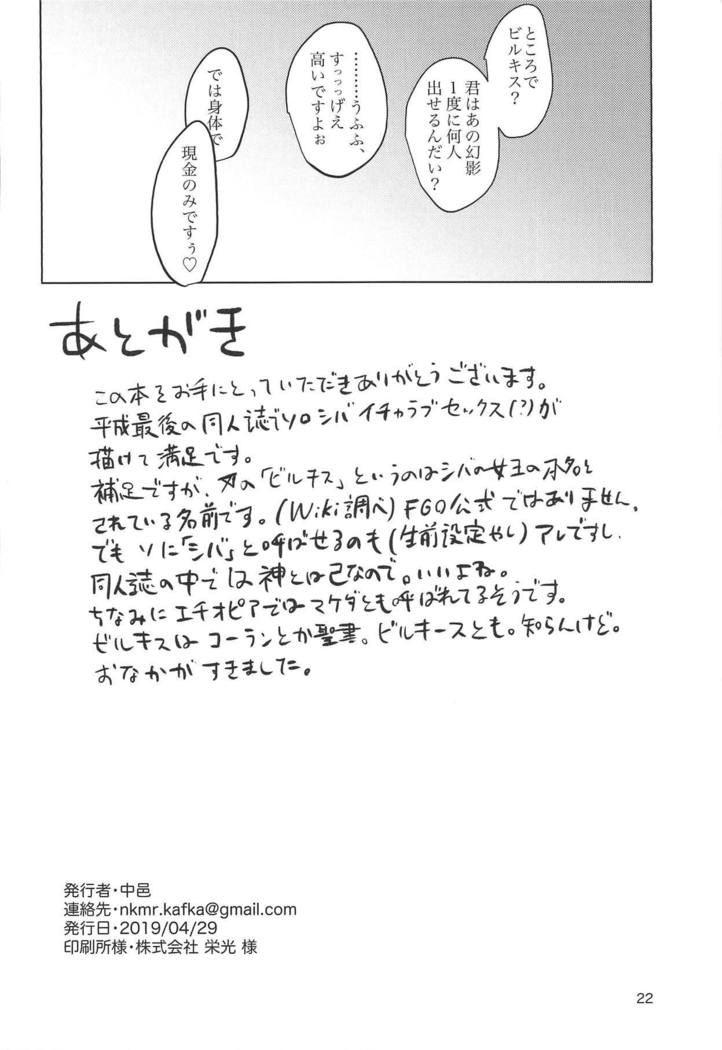 ところで
ビルキス?
君はあの幻影
1度に何人
出せるんだい?
………うふふ、
すっっっげえ
高いですよぉ
では身体で
現金のみですぅ♡
あとがき
この本をお手にとっていただきありがとうございます。
平成最後の同人誌でソロシバイチャラブセックス(?)が
描けて満足です。
補足ですが、の「ビルキス」というのはシバの女王の本名と
されている名前です。(Wiki調べ) FGO公式ではありません。
でもソに「シバ」と呼ばせるのも(生前設定やし)アレですし、
同人誌の中では神とは己なので。いいよね。
ちなみにエチオピアではマケダとも呼ばれてるそうです。
ビルキスはコーランとか聖書。ビルキースとも。知らんけど。
おなかがすきました。
発行者・中邑
連絡先・nkmr.kafka@gmail.com
発行日・2019/04/29
印刷所様・株式会社 栄光 様
22